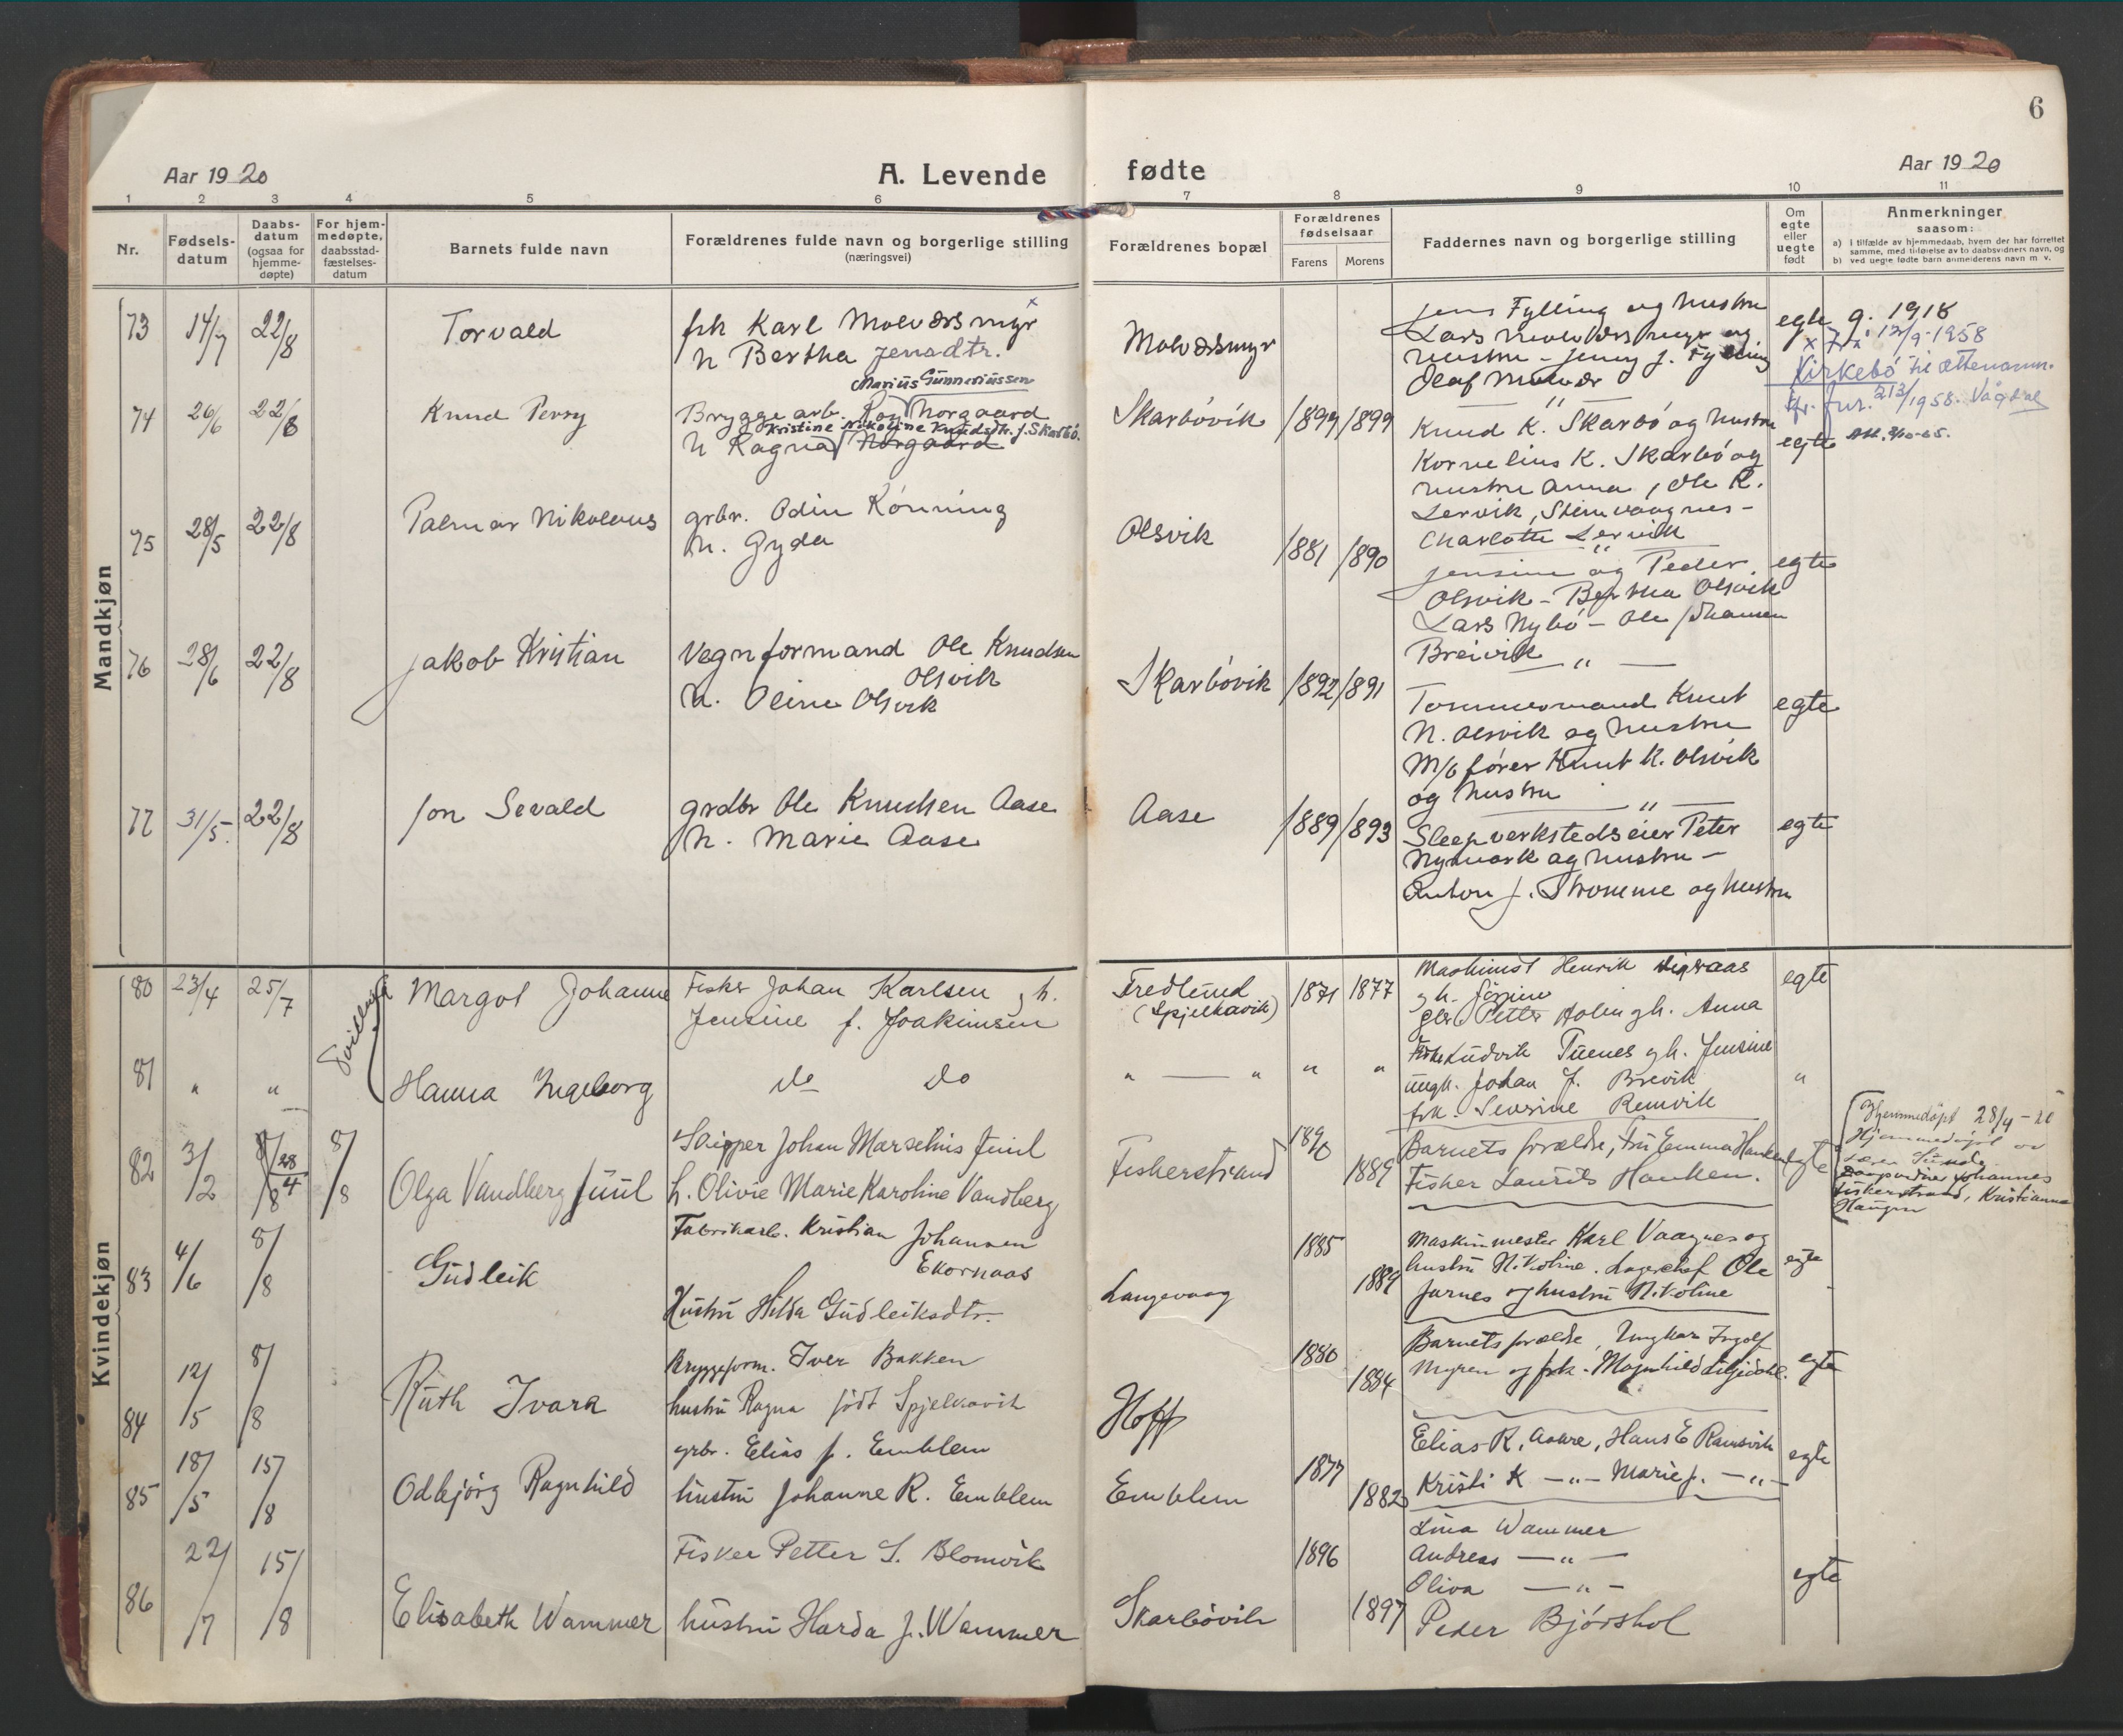 6
Aar 1920
A. Levende fødte
Aar 1920
1 2 3 4 5 6 7 8 9 10 11
Nr.
Fødsels-
datum
Daabs-
datum
(ogsaa for
hjemme-
døpte)
For hjem-
medøpte,
daabsstad-
fæstelses-
datum
Barnets fulde navn
Forældrenes fulde navn og borgerlige stilling
(næringsvei)
Forældrenes bopæl
Forældrenes
fødselsaar
Farens Morens
Faddernes navn og borgerlige stilling
Om
egte
eller
uegte
født
Anmerkninger
saasom:
a) i tilfælde av hjemmedaab, hvem der har forrettet
samme, med tilføielse av to daabsvidners navn, og
b) ved uegte fødte barn anmelderens navn m. v.
Mandkjøn
73 14/7 22/8 Torvald
fsk Karl Molværsmyr x
h Bertha Jensdtr.
Molværsmyr
Jens Fylling og hustru
Lars Molværsmyr og
hustru - Jenny J. Fylling
Olaf Molvær
egte g. 1918
x Fra 12/9-1958
Kirkebö til ættenamn.
Kfr. fur. 513/1958. Vågdal
74 26/6 22/8 Knud Perry
Marius Gunneriussen
Bryggearb. Roy Norgaard
Kristine Nikoline Knudsdtr. f. Skarbö.
h Ragna Norgaard
Skarbövik 1899 1899
Knud K. Skarbö og hustru
Kornelius K. Skarbö og
hustru Anna, Ole R.
Lervik, Steinvaagnes -
Charlotte Lervik
egte
75 28/5 22/8 Palmar Nikolaus
grbr. Odin Rönning
h. Gyda
Olsvik 1881 1890
Jensine og Peder
Olsvik - Bertha Olsvik
Lars Nybö - Ole Johansen
Breivik
egte
76 28/6 22/8 Jakob Kristian
Vegnformand Ole Knudsen
Olsvik
h. Oline Olsvik
Skarbövik 1892 1891
Tømmermand Knut
N. Olsvik og hustru
M/b fører Knut K. Olsvik
og hustru
egte
77 31/5. 22/8 Jon Sevald
grdbr Ole Knudsen Aase
h. Marie Aase
Aase 1889 1893
Sleepverkstedseier Peter
Nymark og hustru -
Anton J. Strømme og hustru
egte
Kvindekjøn
80 23/4 25/7 Tvillinger Margot Johanne
Fisker Johan Karlsen g h.
Jensine f. Joakimsen
Fredlund
(Spjelkavik)
1871 1877
Maskinist Henrik
g h. Jörgine
Petter Holen g h. Anna
egte
81 " " Hanna Ingeborg
do do
" — " " "
Ludvik Tuenes g h. Jensine
ungk. Johan J. Brevik
frk. Severine Remvik
"
82 3/2 8/8 28/4 8/8 Olga Vandberg Juul
Skipper Johan Marselius Juul
h. Olivie Marie Karoline Vandberg
Fiskerstrand 1890 1889
Barnets forældre, fru Emma Hanken
Fisker Laurits Hanken.
egte
Hjemmedøpt 28/4-20
Hjemmedöpt av
Daapsvidner Johannes
Fiskerstrand, Kristianna
Haugen
83 4/6 8/8 Gudleik
Fabrikarb. Kristian Johansen
Ekornaas
Hustru Hilda Gudleiksdtr.
Langevaag 1885 1889
Maskinmester Karl Vaagnes og
hustru Nikoline. Lagerchef Ole
Jarnes og hustru Nikoline
egte
84 12/5 8/8 Ruth Ivara
Bryggeform. Iver Bakken
hustru Ragna födt Spjelkavik
Hoff 1880 1884
Barnets forældre, Ungkar Ingolf
Myren og frk. Magnhild Liljedal.
egte
85 18/5 15/8 Odbjörg Ragnhild
grbr. Elias J. Emblem
hustru Johanne R. Emblem
Emblem 1877 1882
Elias R. Aakre, Hans E Ramsvik
Kristi K —„— Marie J. —„—
egte
86 22/7 15/8 Elisabeth Wammer
Fisker Petter S. Blomvik
hustru Harda f. Wammer
Skarbövik 1896 1897
Lina Wammer
Andreas —„—
Oliva —„—
Peder Bjørshol
egte